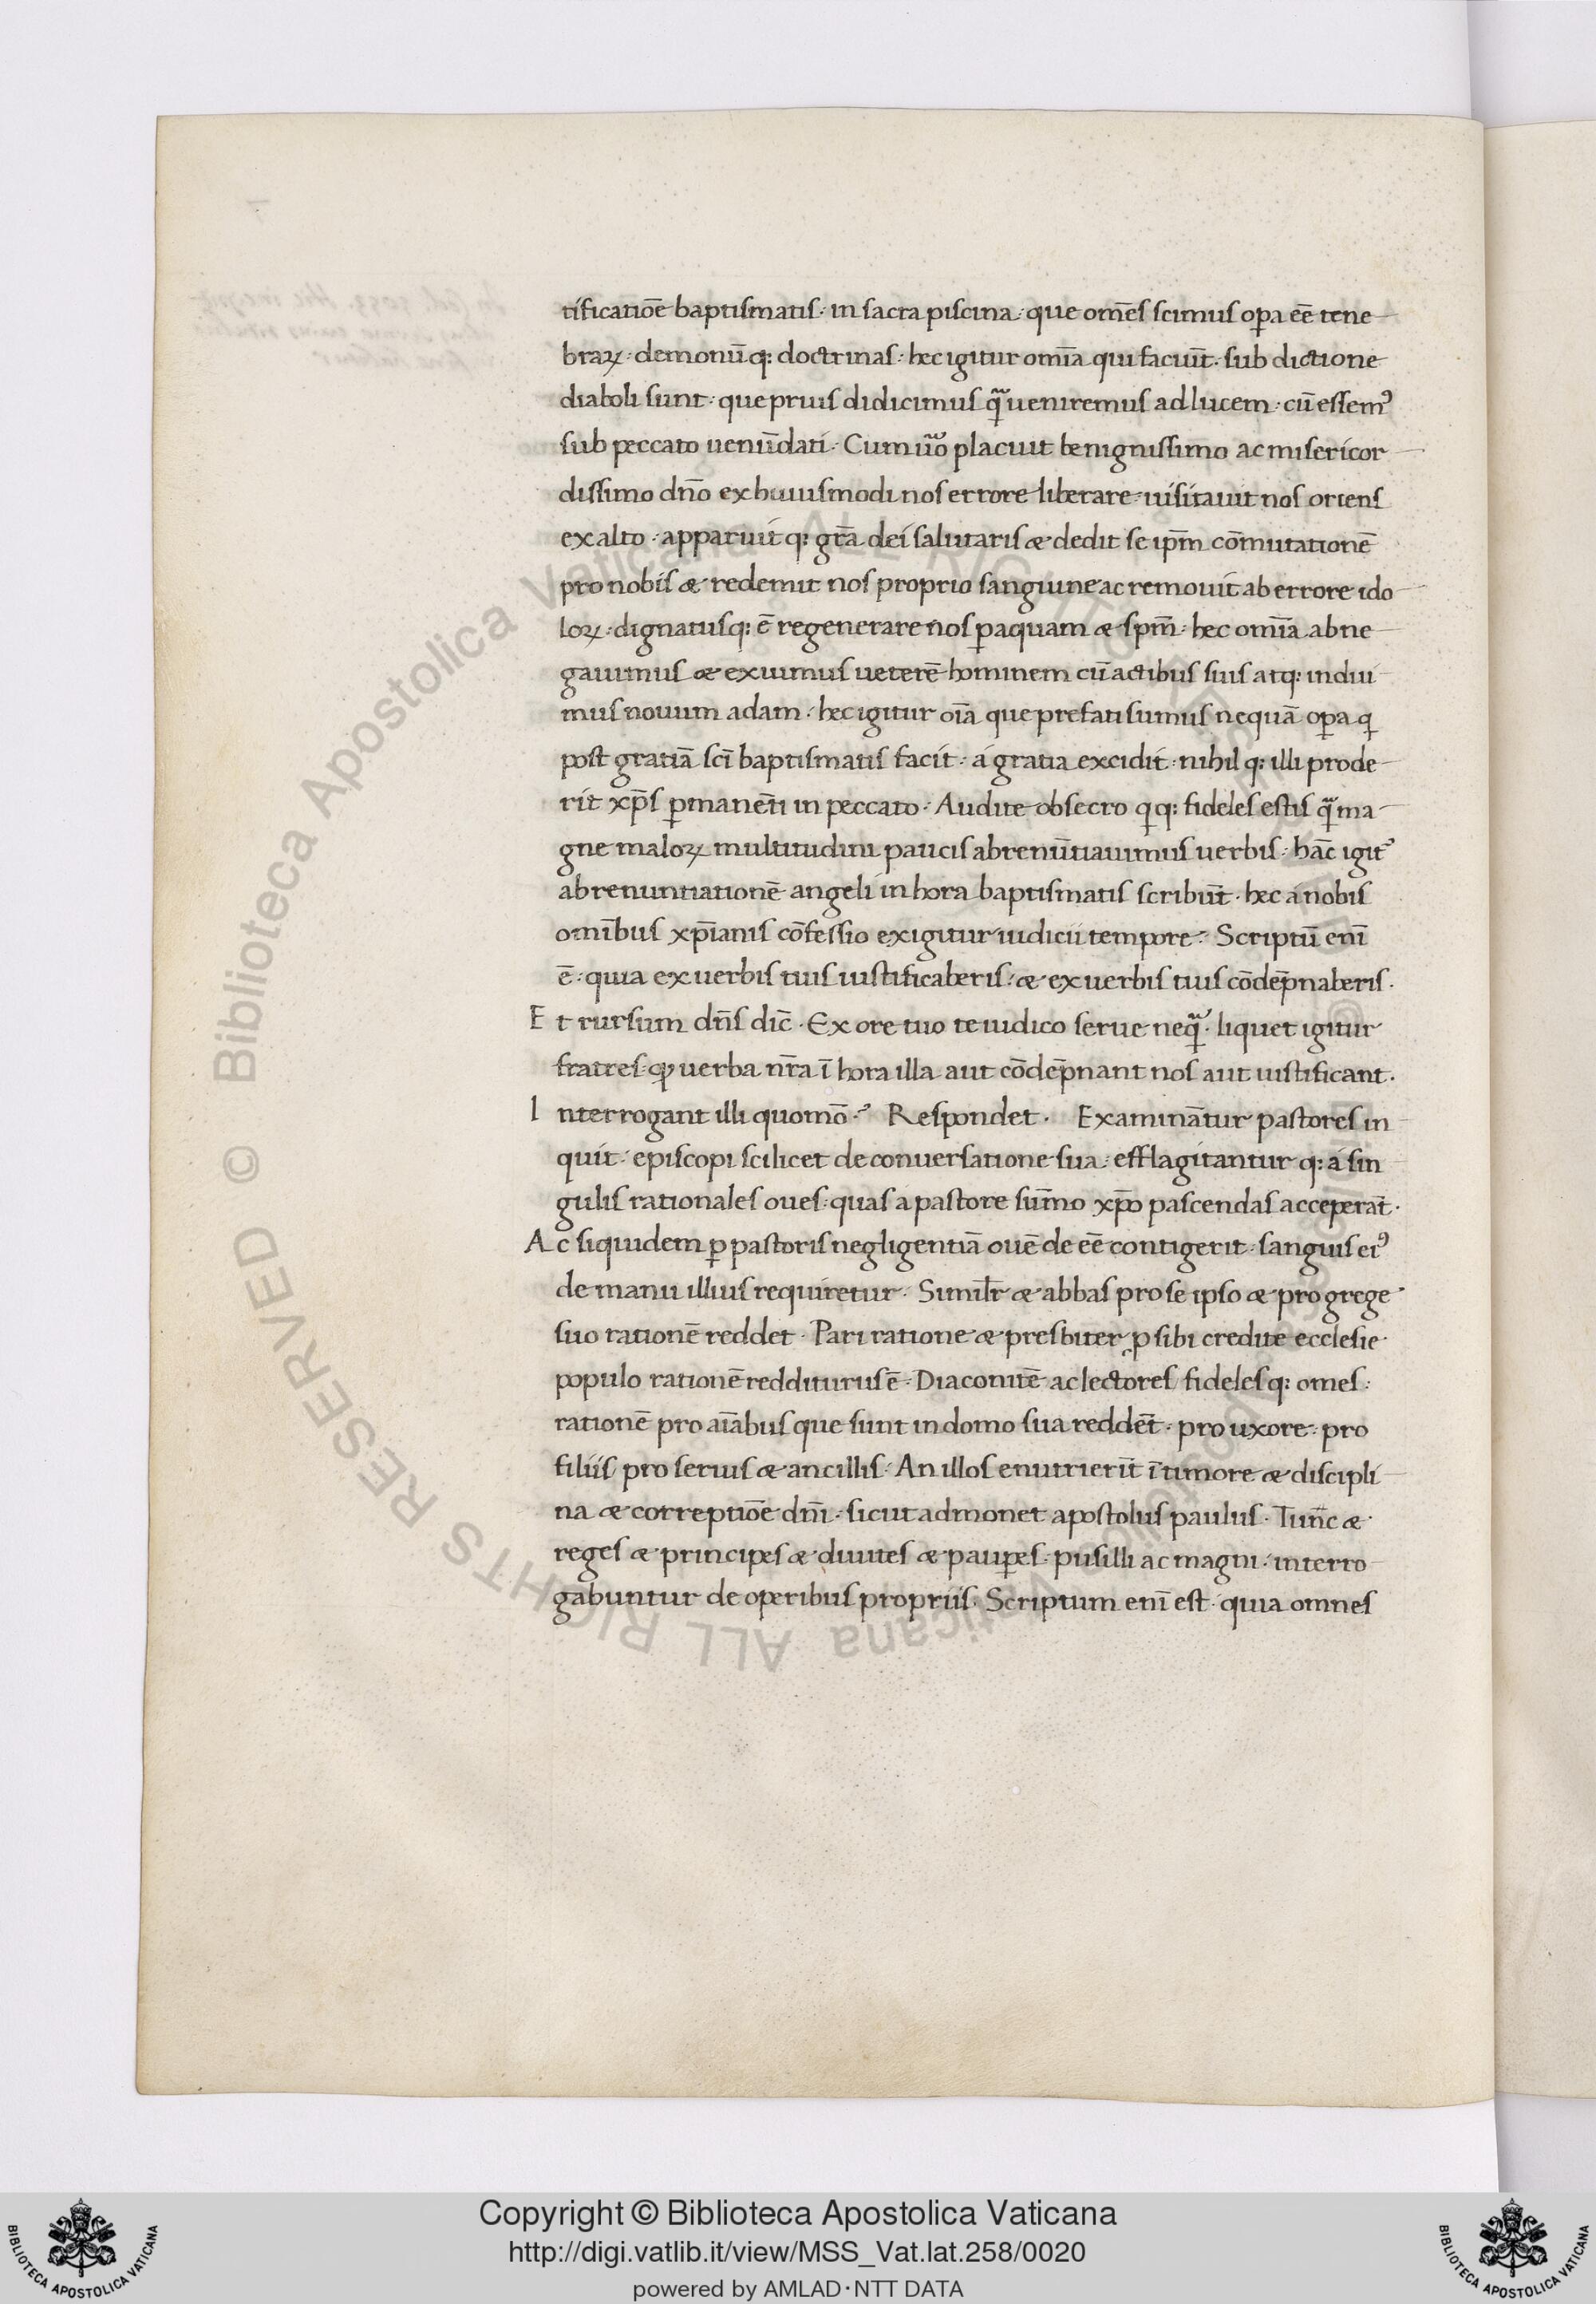 tificatiōe baptismatis · in sacra piscina · que om̄es scimus oꝑa eē tene
braꝝ · demonūq: doctrinas · hec igitur om̄ia qui faciūt · sub dictione
diaboli sunt · que prius didicimus q̄ᵃ ueniremus ad lucem · cū essemꝰ
sub peccato uenūdati · Cum u̅o placuit benignissimo ac misericor
dissimo dn̄o ex huiusmodi nos errore liberare · uisitauit nos oriens
ex alto · apparuit q: gr̄a dei salutaris æ dedit se ip̄m cōmutationē
pro nobis æ redemit nos proprio sanguine ac remouit ab errore ido
loꝝ · dignatusq: ē regenerare nos ꝑ aquam æ sp̄m · hec om̄ia abne
gauimus æ exuimus ueterē hominem cū actibus suis atq: indui
mus nouum adam · hec igitur oīa que prefati sumus nequā oꝑa q
post gratiā scī baptismatis facit · á gratia excidit · nihil q: illi prode
rit xp̄s ꝑmanēti in peccato · Audite obsecro qq: fideles estis q̄ᵃ ma
gne maloꝝ multitudini paucis abrenūtiauimus uerbis · hāc igitꝰ
abrenuntiationē angeli in hora baptismatis scribūt · hec á nobis
omībus xp̄ianis cōfessio exigitur iudicii tempore · Scriptū enī
ē · quia ex uerbis tuis iustificaberis · æ ex uerbis tuis cōdēpnaberis ·
Et rursum dn̄s dic̄ · Ex ore tuo te iudico serue neq̄ᵃ · liquet igitur
fratres · ꝙ uerba nr̄a ī hora illa aut cōdēpnant nos aut iustificant ·
Interrogant illi quomō · Respondet · Examināntur pastores in
quit · episcopi scilicet de conuersatione sua · efflagitantur q: á sin
gulis rationales oues · quas a pastore sūmo xp̄o pascendas acceperāt ·
Ac siquidem ꝑ pastoris negligentiā ouē de eē contigerit · sanguis eiꝰ
de manu illius requiretur · Similr̄ æ abbas pro se ipso æ pro grege
suo rationē reddet · Pari ratione æ presbiter ꝓ sibi credite ecclesie
populo rationē redditurus ē · Diaconi tē ac lectores fideles q: omes ·
rationē pro aīabus que sunt in domo sua reddēt · pro uxore · pro
filiis pro seruis æ ancillis · An illos enutrierīt ī timore æ discipli
na æ correptiōe dn̄i · sicut admonet apostolus paulus · Tunc̄ æ
reges æ principes æ diuites æ pauꝑes · pusilli ac magni · interro
gabuntur de operibus propriis · Scriptum enī est · quia omnes
© Biblioteca Apostolica Vaticana ALL RIGHTS RESERVED
Copyright © Biblioteca Apostolica Vaticana
http://digi.vatlib.it/view/MSS_Vat.lat.258/0020
powered by AMLAD·NTT DATA
BIBLIOTECA APOSTOLICA VATICANA
BIBLIOTECA APOSTOLICA VATICANA